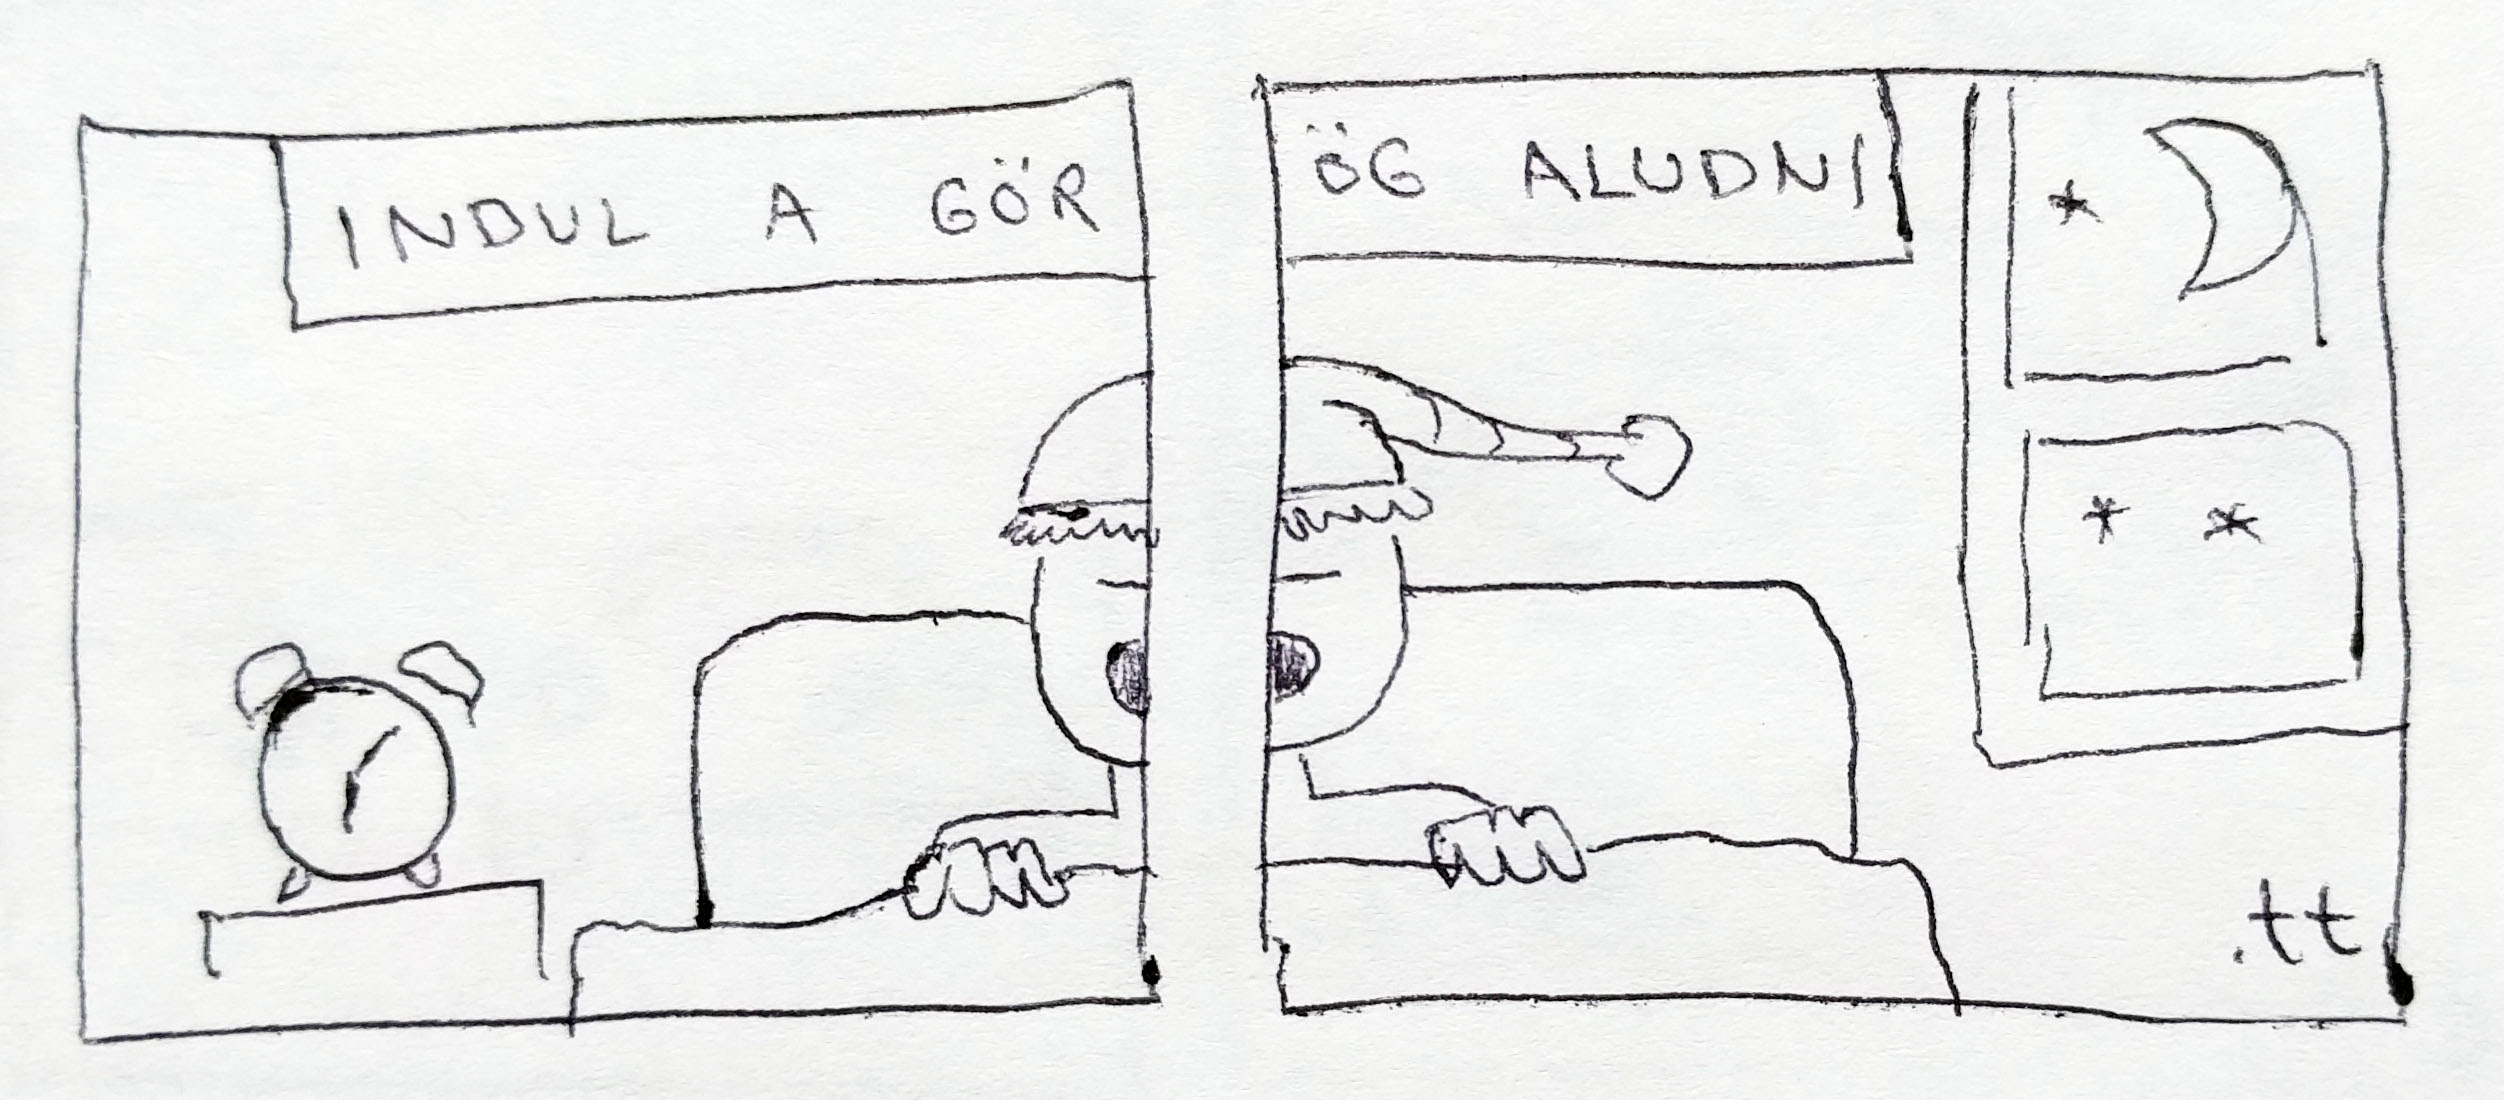 INDUL A GÖR
ÖG ALUDNI
.tt